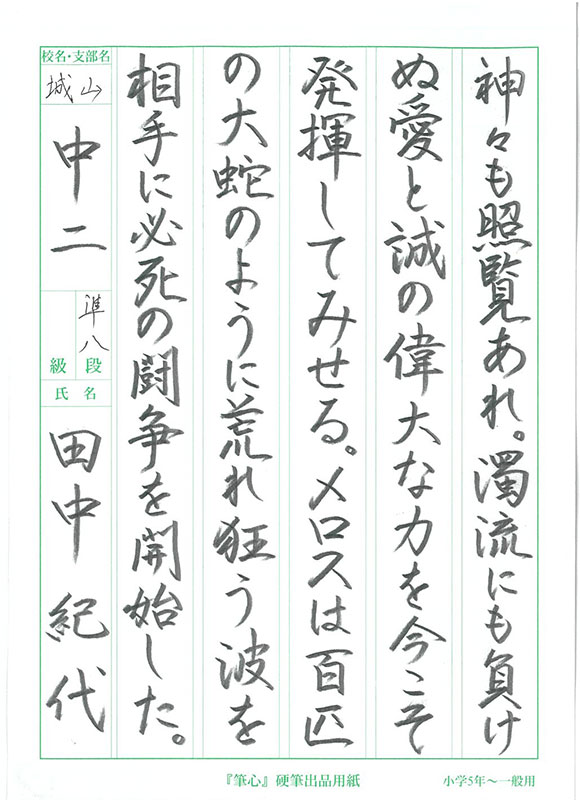 神々も照覧あれ。濁流にも負け
ぬ愛と誠の偉大な力を今こそ
発揮してみせる。メロスは百匹
の大蛇のように荒れ狂う波を
相手に必死の闘争を開始した。
校名・支部名
城山
中二
準八
段
級
氏名
田中紀代
『筆心』硬筆出品用紙
小学5年〜一般用